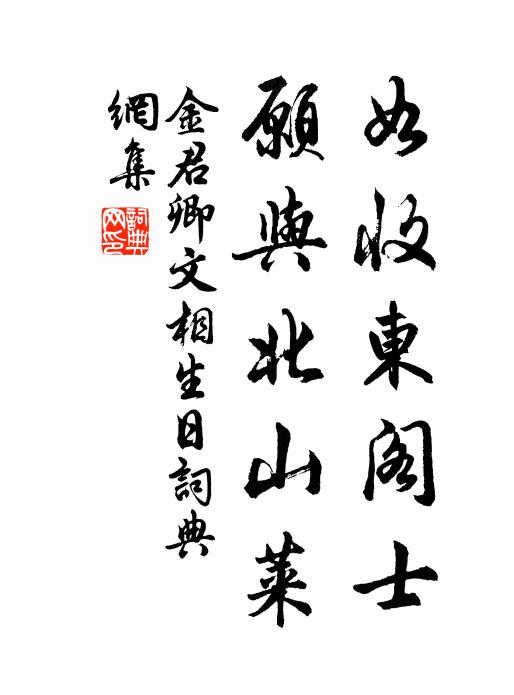 如收東阁士
願與北山萊
金君卿文相生日詞典
網集
詞典
网印